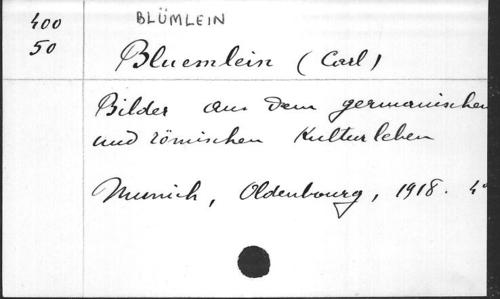 400
50
BLÜMLEIN
Bluemlein (Carl)
Bilder aus dem germanischen
und römischen Kulturleben
Munich, Oldenbourg, 1918. 4°